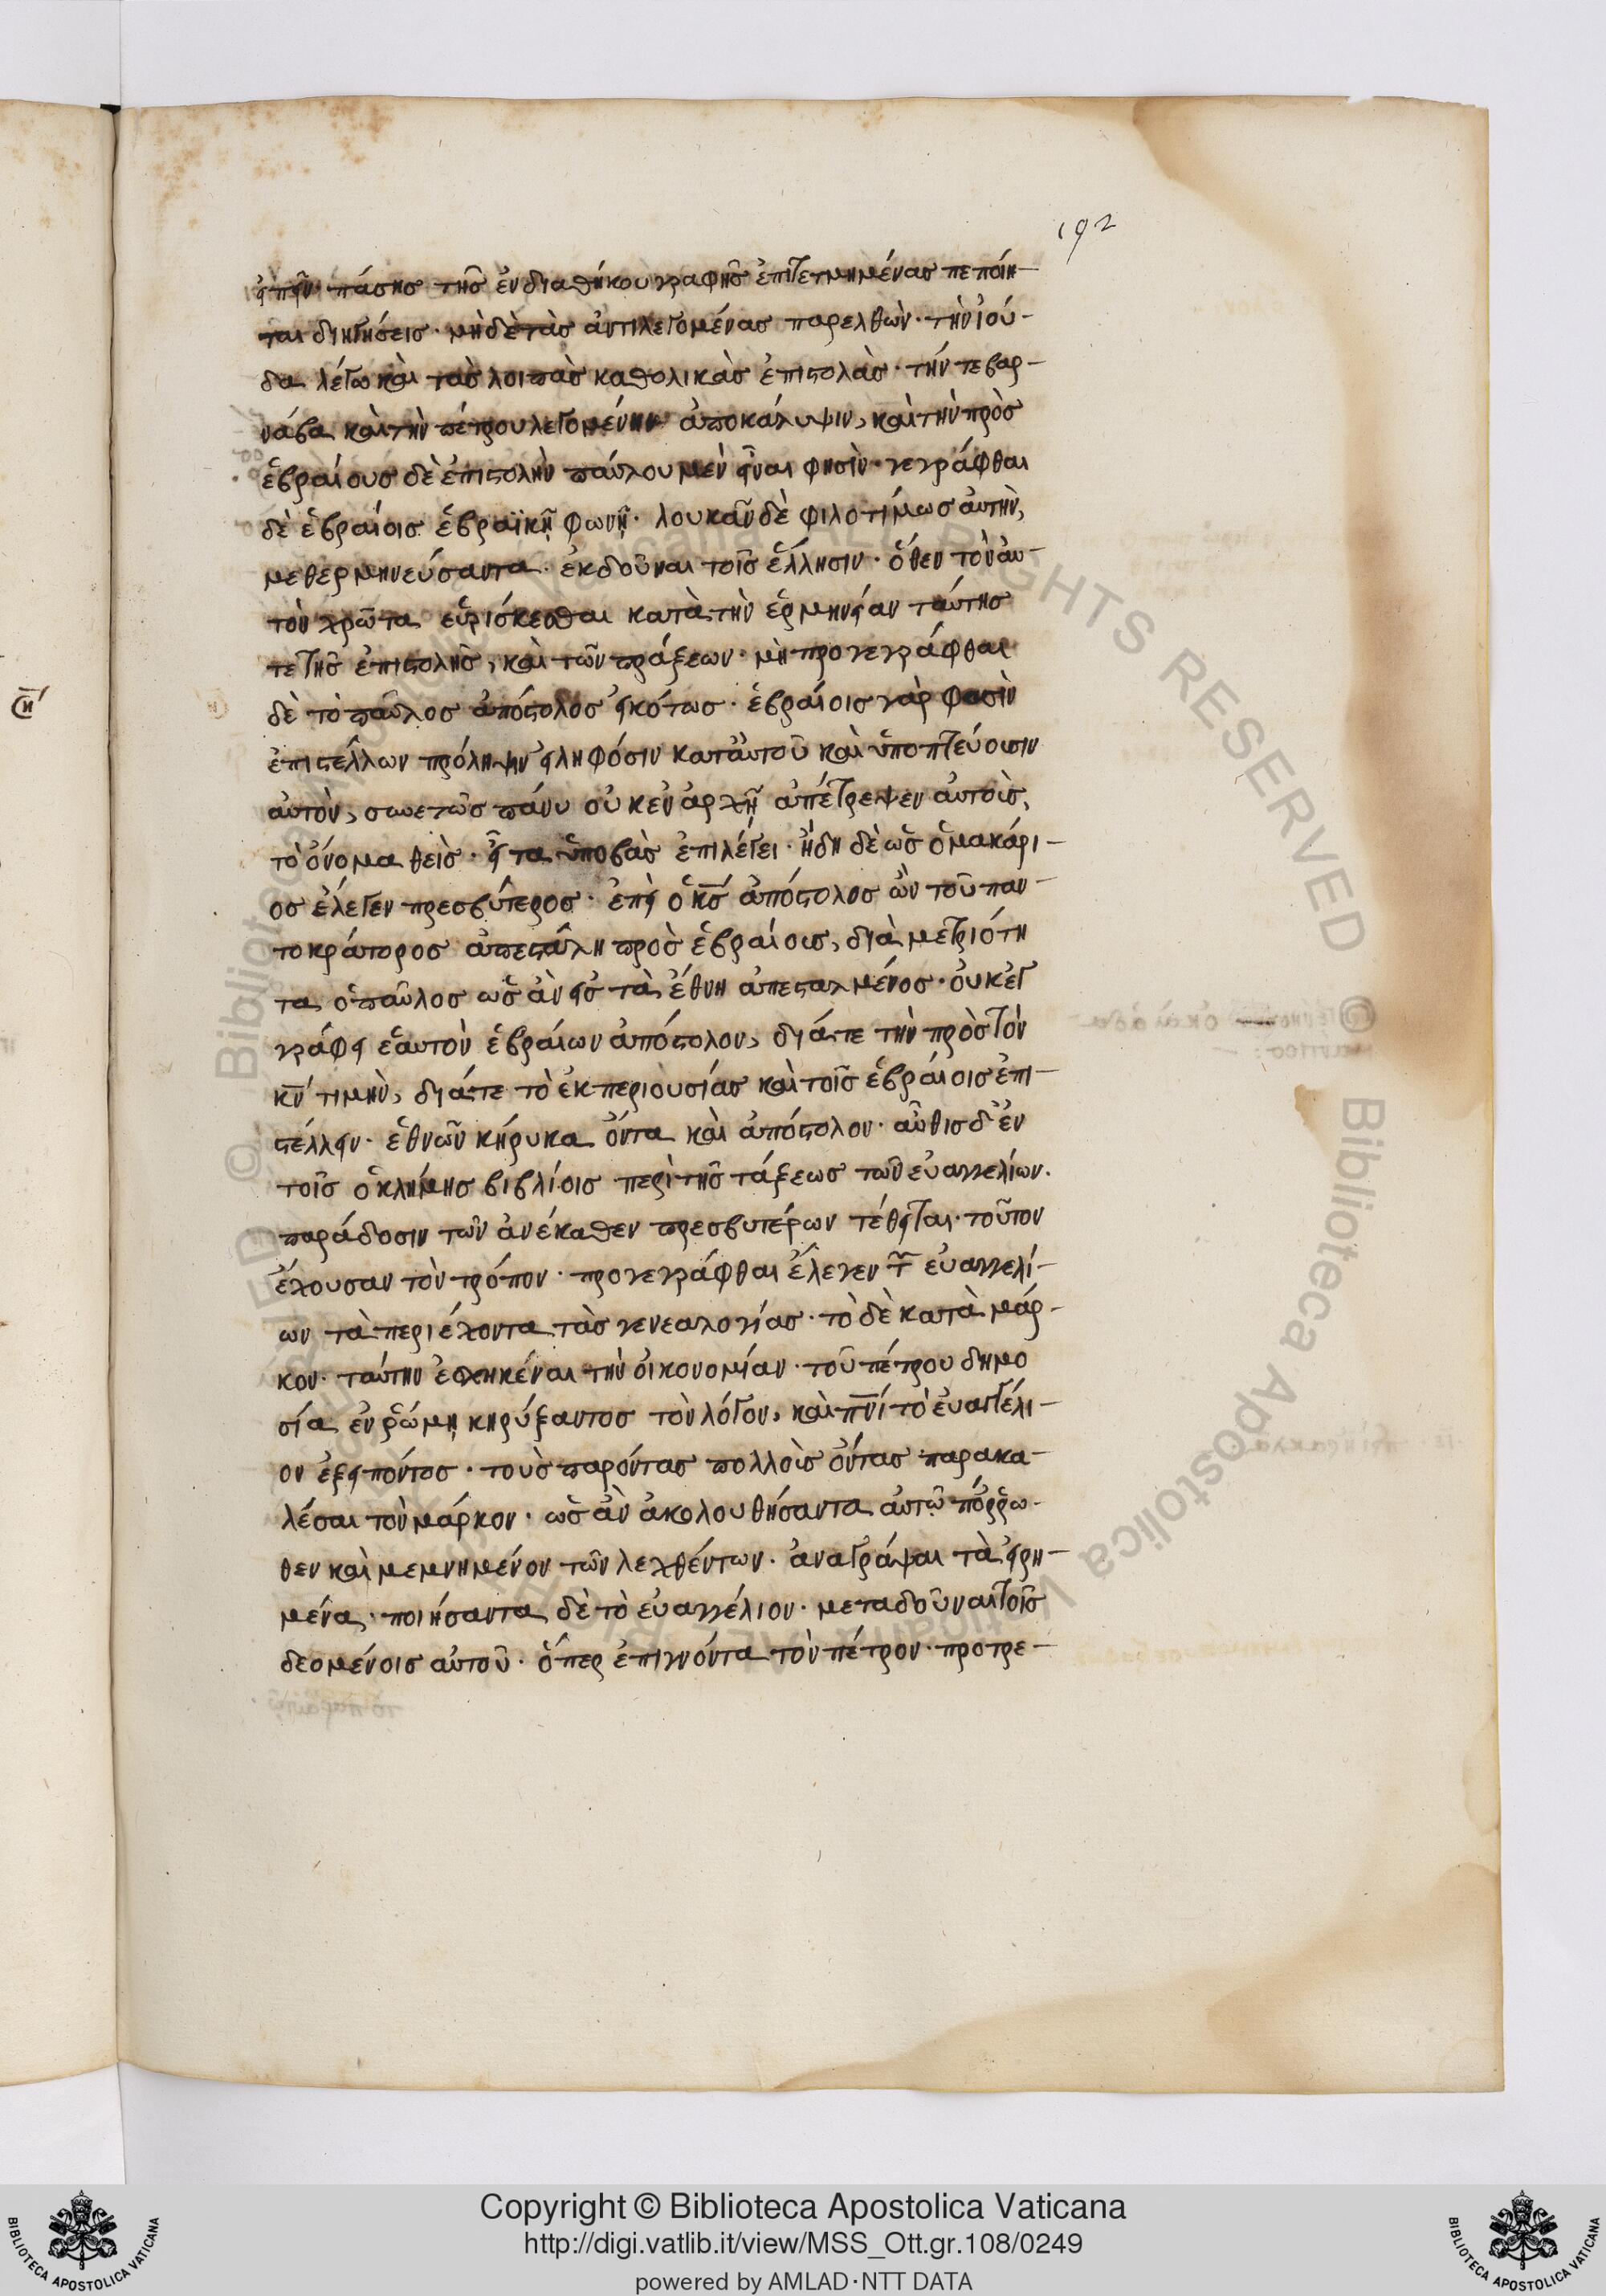 192
εἰπεῖν πάσης τῆς ἐνδιαθήκου γραφῆς ἐπιτετμημένας πεποίη-
ται διηγήσεις· μὴ δὲ τὰς ἀντιλεγομένας παρελθὼν· τὴν ἰού-
δα λέγω καὶ τὰς λοιπὰς καθολικὰς ἐπιστολὰς· τήν τε βαρ-
νάβα καὶ τὴν πέτρου λεγομένην ἀποκάλυψιν, καὶ τὴν πρὸς
ἑβραίους δὲ ἐπιστολὴν παύλου μὲν εἶναι φησὶν· γεγράφθαι
δὲ ἑβραίοις ἑβραϊκῇ φωνῇ· λουκᾶν δὲ φιλοτίμως αὐτὴν,
μεθερμηνεύσαντα· ἐκδοῦναι τοῖς ἕλλησιν· ὅθεν τὸν αὐ-
τὸν χρῶτα εὑρίσκεσθαι κατὰ τὴν ἑρμηνείαν ταύτης
τε τῆς ἐπιστολῆς, καὶ τῶν πράξεων· μὴ προγεγράφθαι
δὲ τὸ παῦλος ἀπόστολος εἰκότως· ἑβραίοις γάρ φασὶν
ἐπιστέλλων πρόληψιν εἰληφόσιν κατ αὐτοῦ καὶ ὑποπτεύουσιν
αὐτὸν, συνετῶς πάνυ οὐκ ἐν ἀρχῇ ἀπέτρεψεν αὐτοὺς,
τὸ ὄνομα θεὶς· εἶτα ὑποβὰς ἐπιλέγει· ἤδη δὲ ὡς ὁ μακάρι-
ος ἔλεγεν πρεσβύτερος· ἐπεὶ ὁ κς ἀπόστολος ὢν τοῦ παν-
τοκράτορος ἀπεστάλη πρὸς ἑβραίους, διὰ μετριότη
τα ὁ παῦλος ὡς ἂν εἰς τὰ ἔθνη ἀπεσταλμένος· οὐκ ἐγ
γράφει ἑαυτὸν ἑβραίων ἀπόστολον, διά τε τὴν πρὸς τὸν
κν τιμὴν, διά τε τὸ ἐκ περιουσίας καὶ τοῖς ἑβραίοις ἐπι-
στέλλειν· ἐθνῶν κήρυκα ὄντα καὶ ἀπόστολον· αὖθις δ ἐν
τοῖς ὁ κλήμης βιβλίοις περὶ τῆς τάξεως τῶν εὐαγγελίων·
παράδοσιν τῶν ἀνέκαθεν πρεσβυτέρων τέθειται· τοῦτον
ἔχουσαν τὸν τρόπον· προγεγράφθαι ἔλεγεν τῶν εὐαγγελί-
ων τὰ περιέχοντα τὰς γενεαλογίας· τὸ δὲ κατὰ μάρ-
κον· ταύτην ἐσχηκέναι τὴν οἰκονομίαν· τοῦ πέτρου δημο
σία ἐν ῥώμῃ κηρύξαντος τὸν λόγον, καὶ πνί τὸ εὐαγγέλι-
ον ἐξειπόντος· τοὺς παρόντας πολλοὺς ὄντας παρακα-
λέσαι τὸν μάρκον· ὡς ἂν ἀκολουθήσαντα αὐτῷ πόῤῥω-
θεν καὶ μεμνημένον τῶν λεχθέντων· ἀναγράψαι τὰ εἰρη-
μένα· ποιήσαντα δὲ τὸ εὐαγγέλιον· μεταδοῦναι τοῖς
δεομένοις αὐτοῦ· ὅπερ ἐπιγνόντα τὸν πέτρον· προτρε-
Copyright © Biblioteca Apostolica Vaticana
http://digi.vatlib.it/view/MSS_Ott.gr.108/0249
powered by AMLAD·NTT DATA